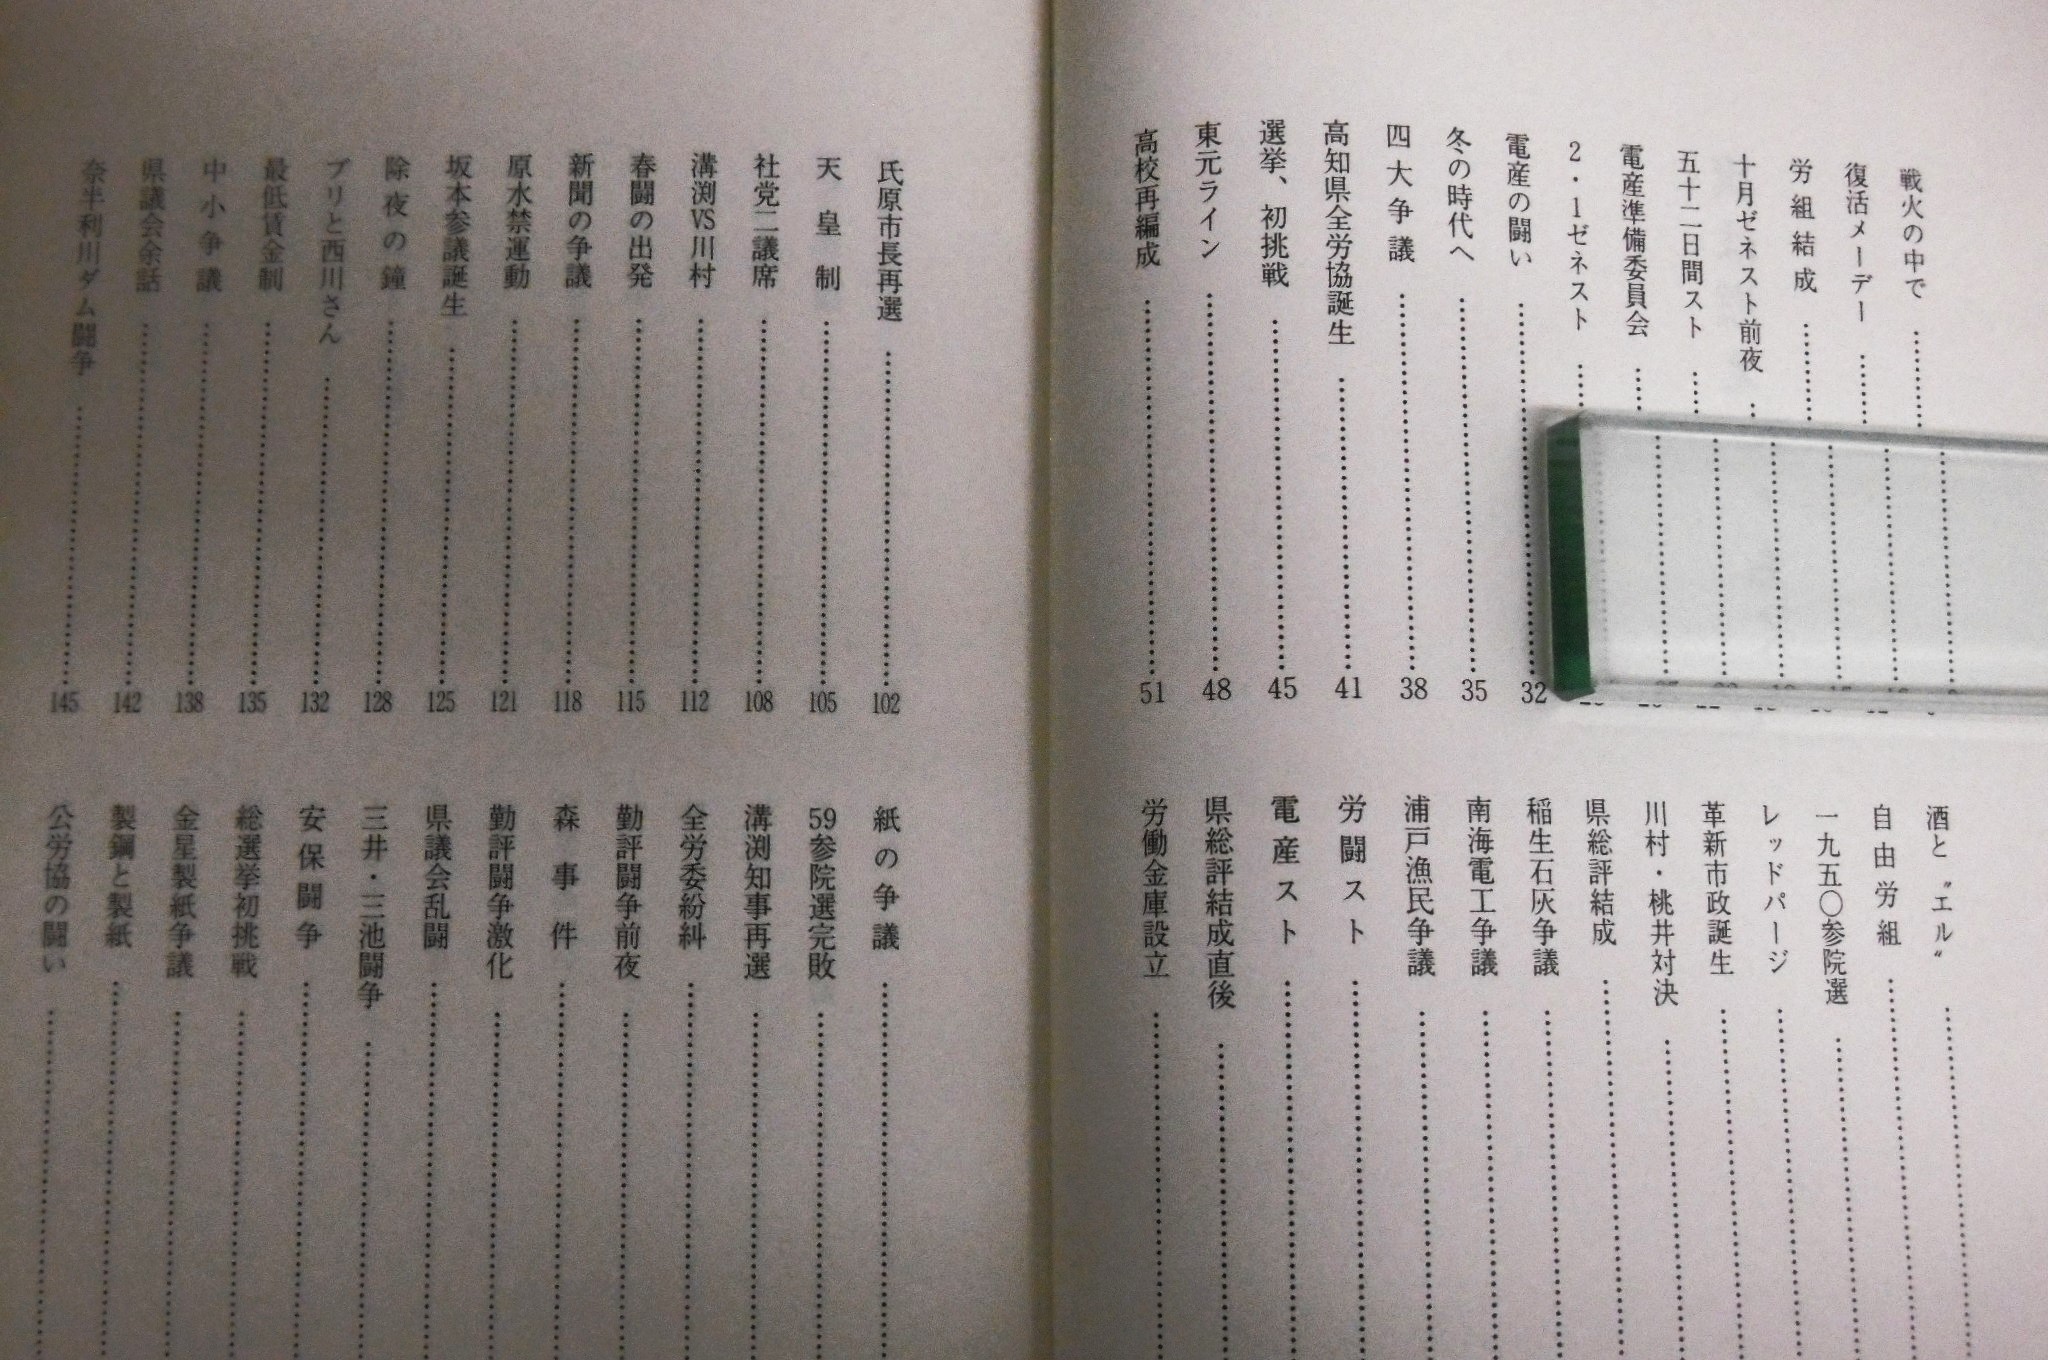 戦火の中で
復活メーデー
労組結成
十月ゼネスト前夜
五十二日間スト
電産準備委員会
2・1ゼネスト
電産の闘い 32
冬の時代へ 35
四大争議 38
高知県全労協誕生 41
選挙、初挑戦 45
東元ライン 48
高校再編成 51
酒と〝エル〟
自由労組
一九五〇参院選
レッドパージ
革新市政誕生
川村・桃井対決
県総評結成
稲生石灰争議
南海電工争議
浦戸漁民争議
労闘スト
電産スト
県総評結成直後
労働金庫設立
氏原市長再選 102
天皇制 105
社党二議席 108
溝渕VS川村 112
春闘の出発 115
新聞の争議 118
原水禁運動 121
坂本参議誕生 125
除夜の鐘 128
ブリと西川さん 132
最低賃金制 135
中小争議 138
県議会余話 142
奈半利川ダム闘争 145
紙の争議
59参院選完敗
溝渕知事再選
全労委紛糾
勤評闘争前夜
森事件
勤評闘争激化
県議会乱闘
三井・三池闘争
安保闘争
総選挙初挑戦
金星製紙争議
製鋼と製紙
公労協の闘い